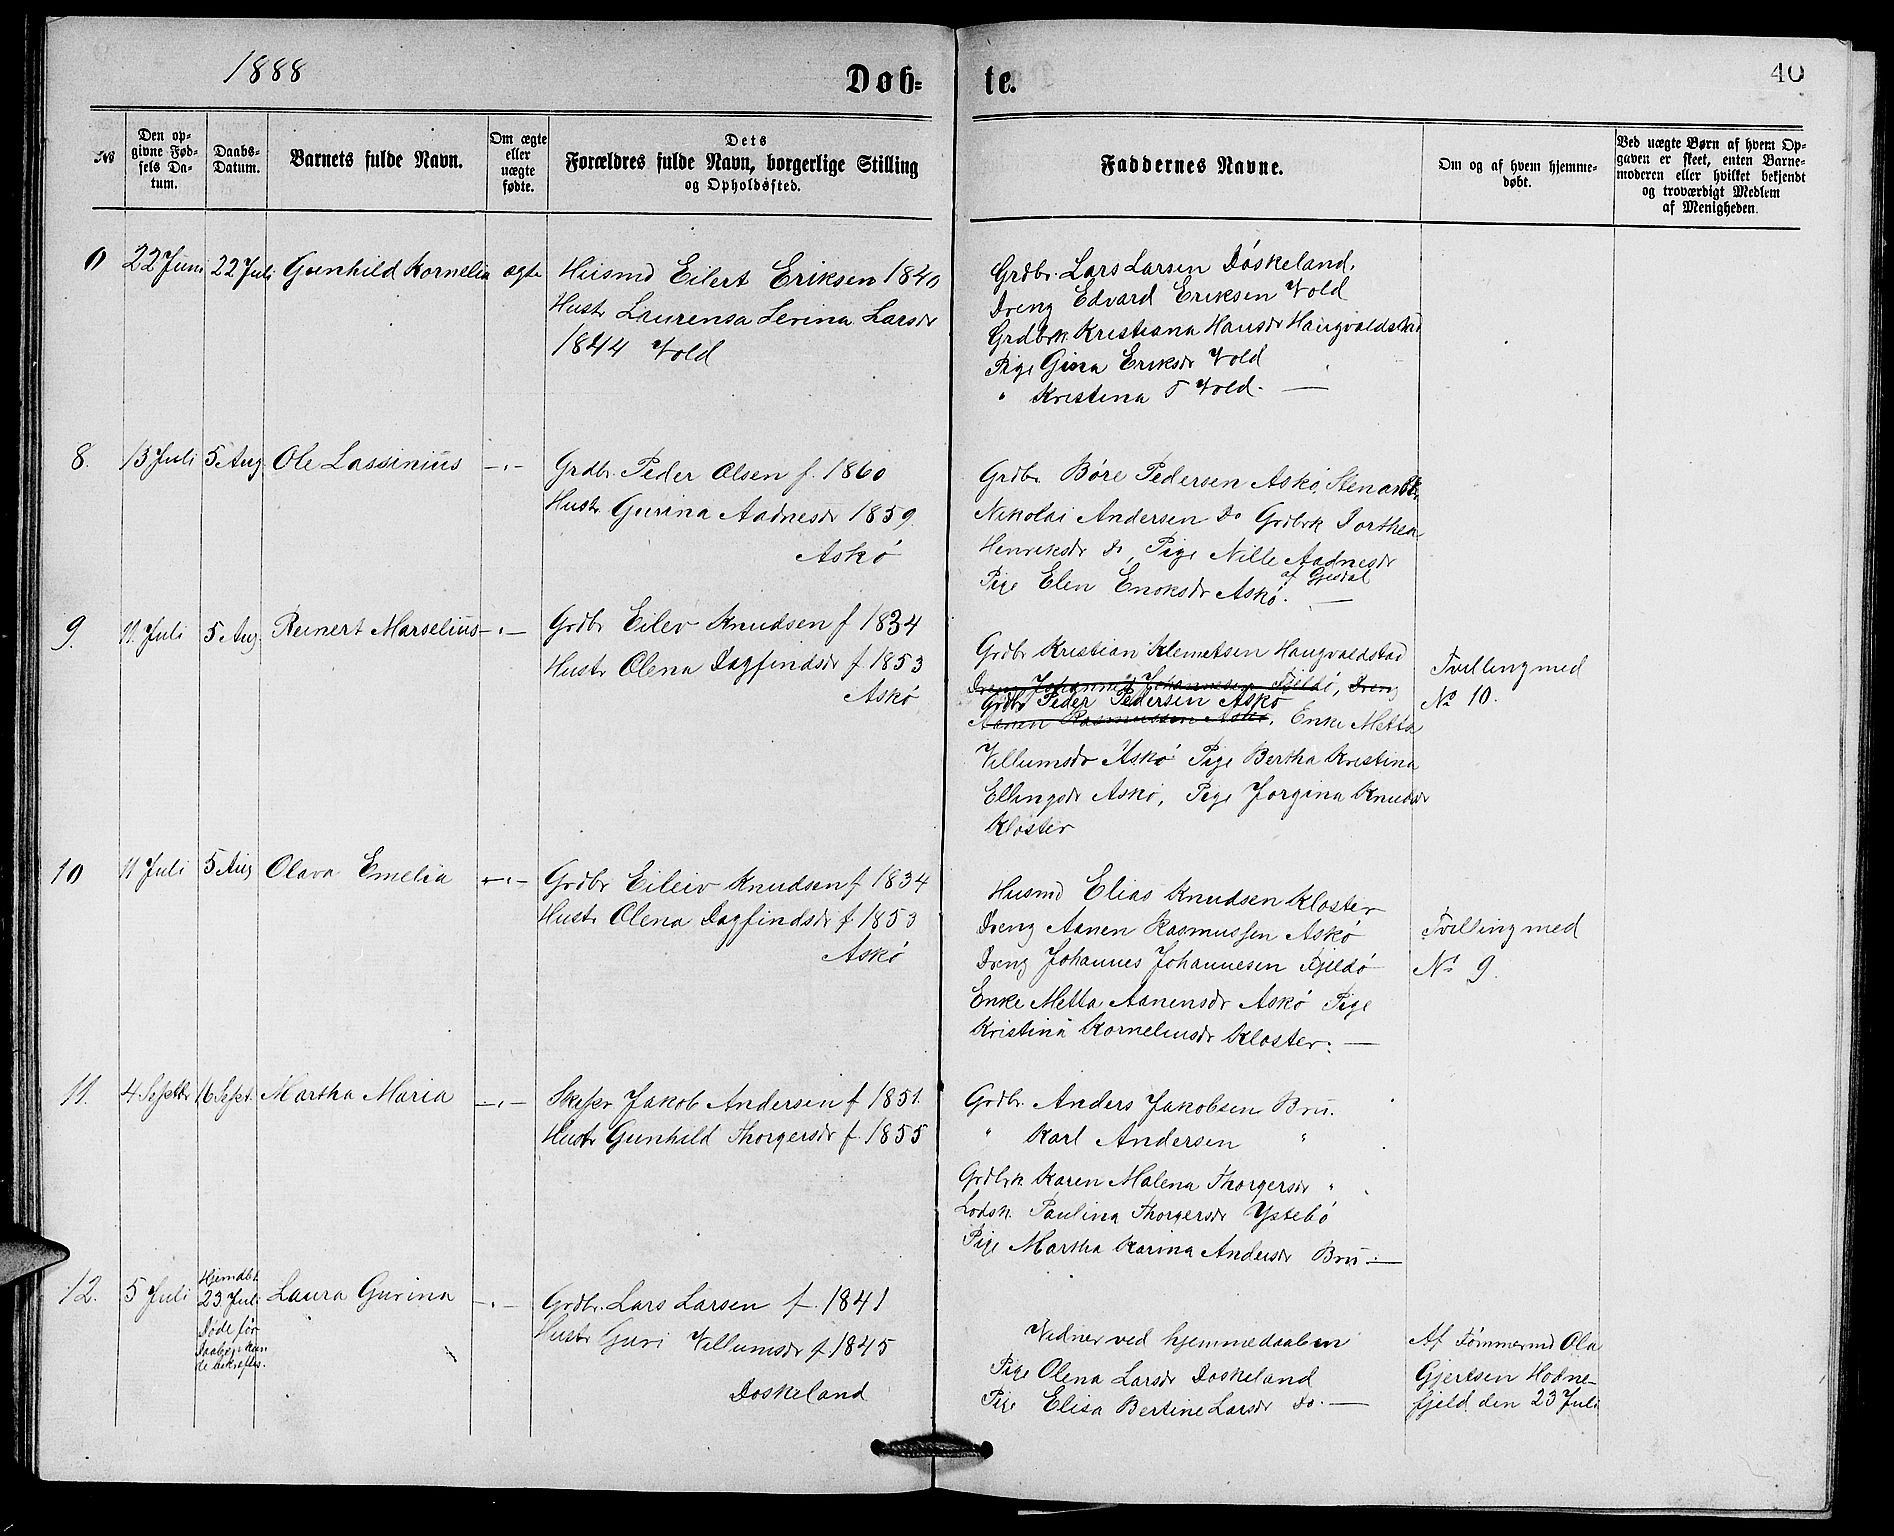 1888
Døb-
te.
40
No
Den op-
givne Fød-
sels Da-
tum.
Daabs-
Datum.
Barnets fulde Navn.
Om ægte
eller
uægte
fødte.
Dets
Forældres fulde Navn, borgerlige Stilling
og Opholdssted.
Faddernes Navne.
Om og af hvem hjemme-
døbt.
Ved uægte Børn af hvem Op-
gaven er skeet, enten Barne-
moderen eller hvilket bekjendt
og troværdigt Medlem
af Menigheden.
22 Juni 22 Juli Gunhild Kornelia ægte
Husmd Eilert Eriksen 1840
Hustr Laurensa Serina Larsdr
1844 Vold
Grdbr. Lars Larsen Døskeland.
Dreng Edvard Eriksen Vold
Grdbrk. Kristiana Hansdr Haugvaldstad
Pige Gina Eriksdr Vold
" Kristina T Vold. —
8. 13 Juli 5 Aug. Ole Lassinius —"—
Grdbr. Peder Olsen f. 1860
Hustr. Gurina Aadnesdr 1859.
Askø
Grdbr Børe Pedersen Askø, Stenarb.
Nikolai Andersen Do Grdbrk Dorthea
Henriksdr do, Pige Nille Aadnesdr
af Gjesdal
Pige Elen Enoksdr Askø. —
9. 11 Juli 5 Aug. Reinert Marselius —"—
Grdbr Eilev Knudsen f 1834
Hustr Olena Dagfindsdr f. 1853
Askø
Grdbr Kristian Klemetsen Haugvaldstad
Dreng Johannes Johannesen Fjeldø, Dreng
Grdbr Peder Pedersen Askø
Aanen Rasmussen Askø, Enke Metta
Villumsdr Askø Pige Bertha Kristina
Ellingsdr Askø, Pige Jorgina Knudsdr
Kloster
Tvilling med
No 10.
10 11 Juli 5 Aug Olava Emelia —"—
Grdbr Eileiv Knudsen f 1834
Hustr Olena Dagfindsdr f 1853
Askø
Husmd Elias Knudsen Kloster
Dreng Aanen Rasmussen Askø
Dreng Johannes Johannesen Fjeldø
Enke Metta Aanensdr Askø Pige
Kristina Korneliusdr Kloster. —
Tvilling med
No 9.
11. 4 Septbr 16 Sept. Martha Maria —"—
Skipr Jakob Andersen f 1851.
Hustr Gunhild Thorgersdr f. 1855
Grdbr. Anders Jakobsen Bru.
" Karl Andersen "
Grdbrk Karen Malena Thorgersdr "
Lodsk. Paulina Thorgersdr Ystebø
Pige Martha Karina Andersdr Bru. —
12. 5 Juli
Hjemdbt
23 Juli
Døde før
Daaben kun
de bekræftes.
Laura Gurina —"—
Grdbr. Lars Larsen f. 1841
Hustr Guri Villumsdr f. 1845
Doskeland
Vidner ved hjemmedaaben
Pige Olena Larsdr Doskeland
Pige Elisa Bertine Larsdr Do. —
Af Tømmermd Ola
Gjertsen Hodne-
fjeld. den 23 Juli